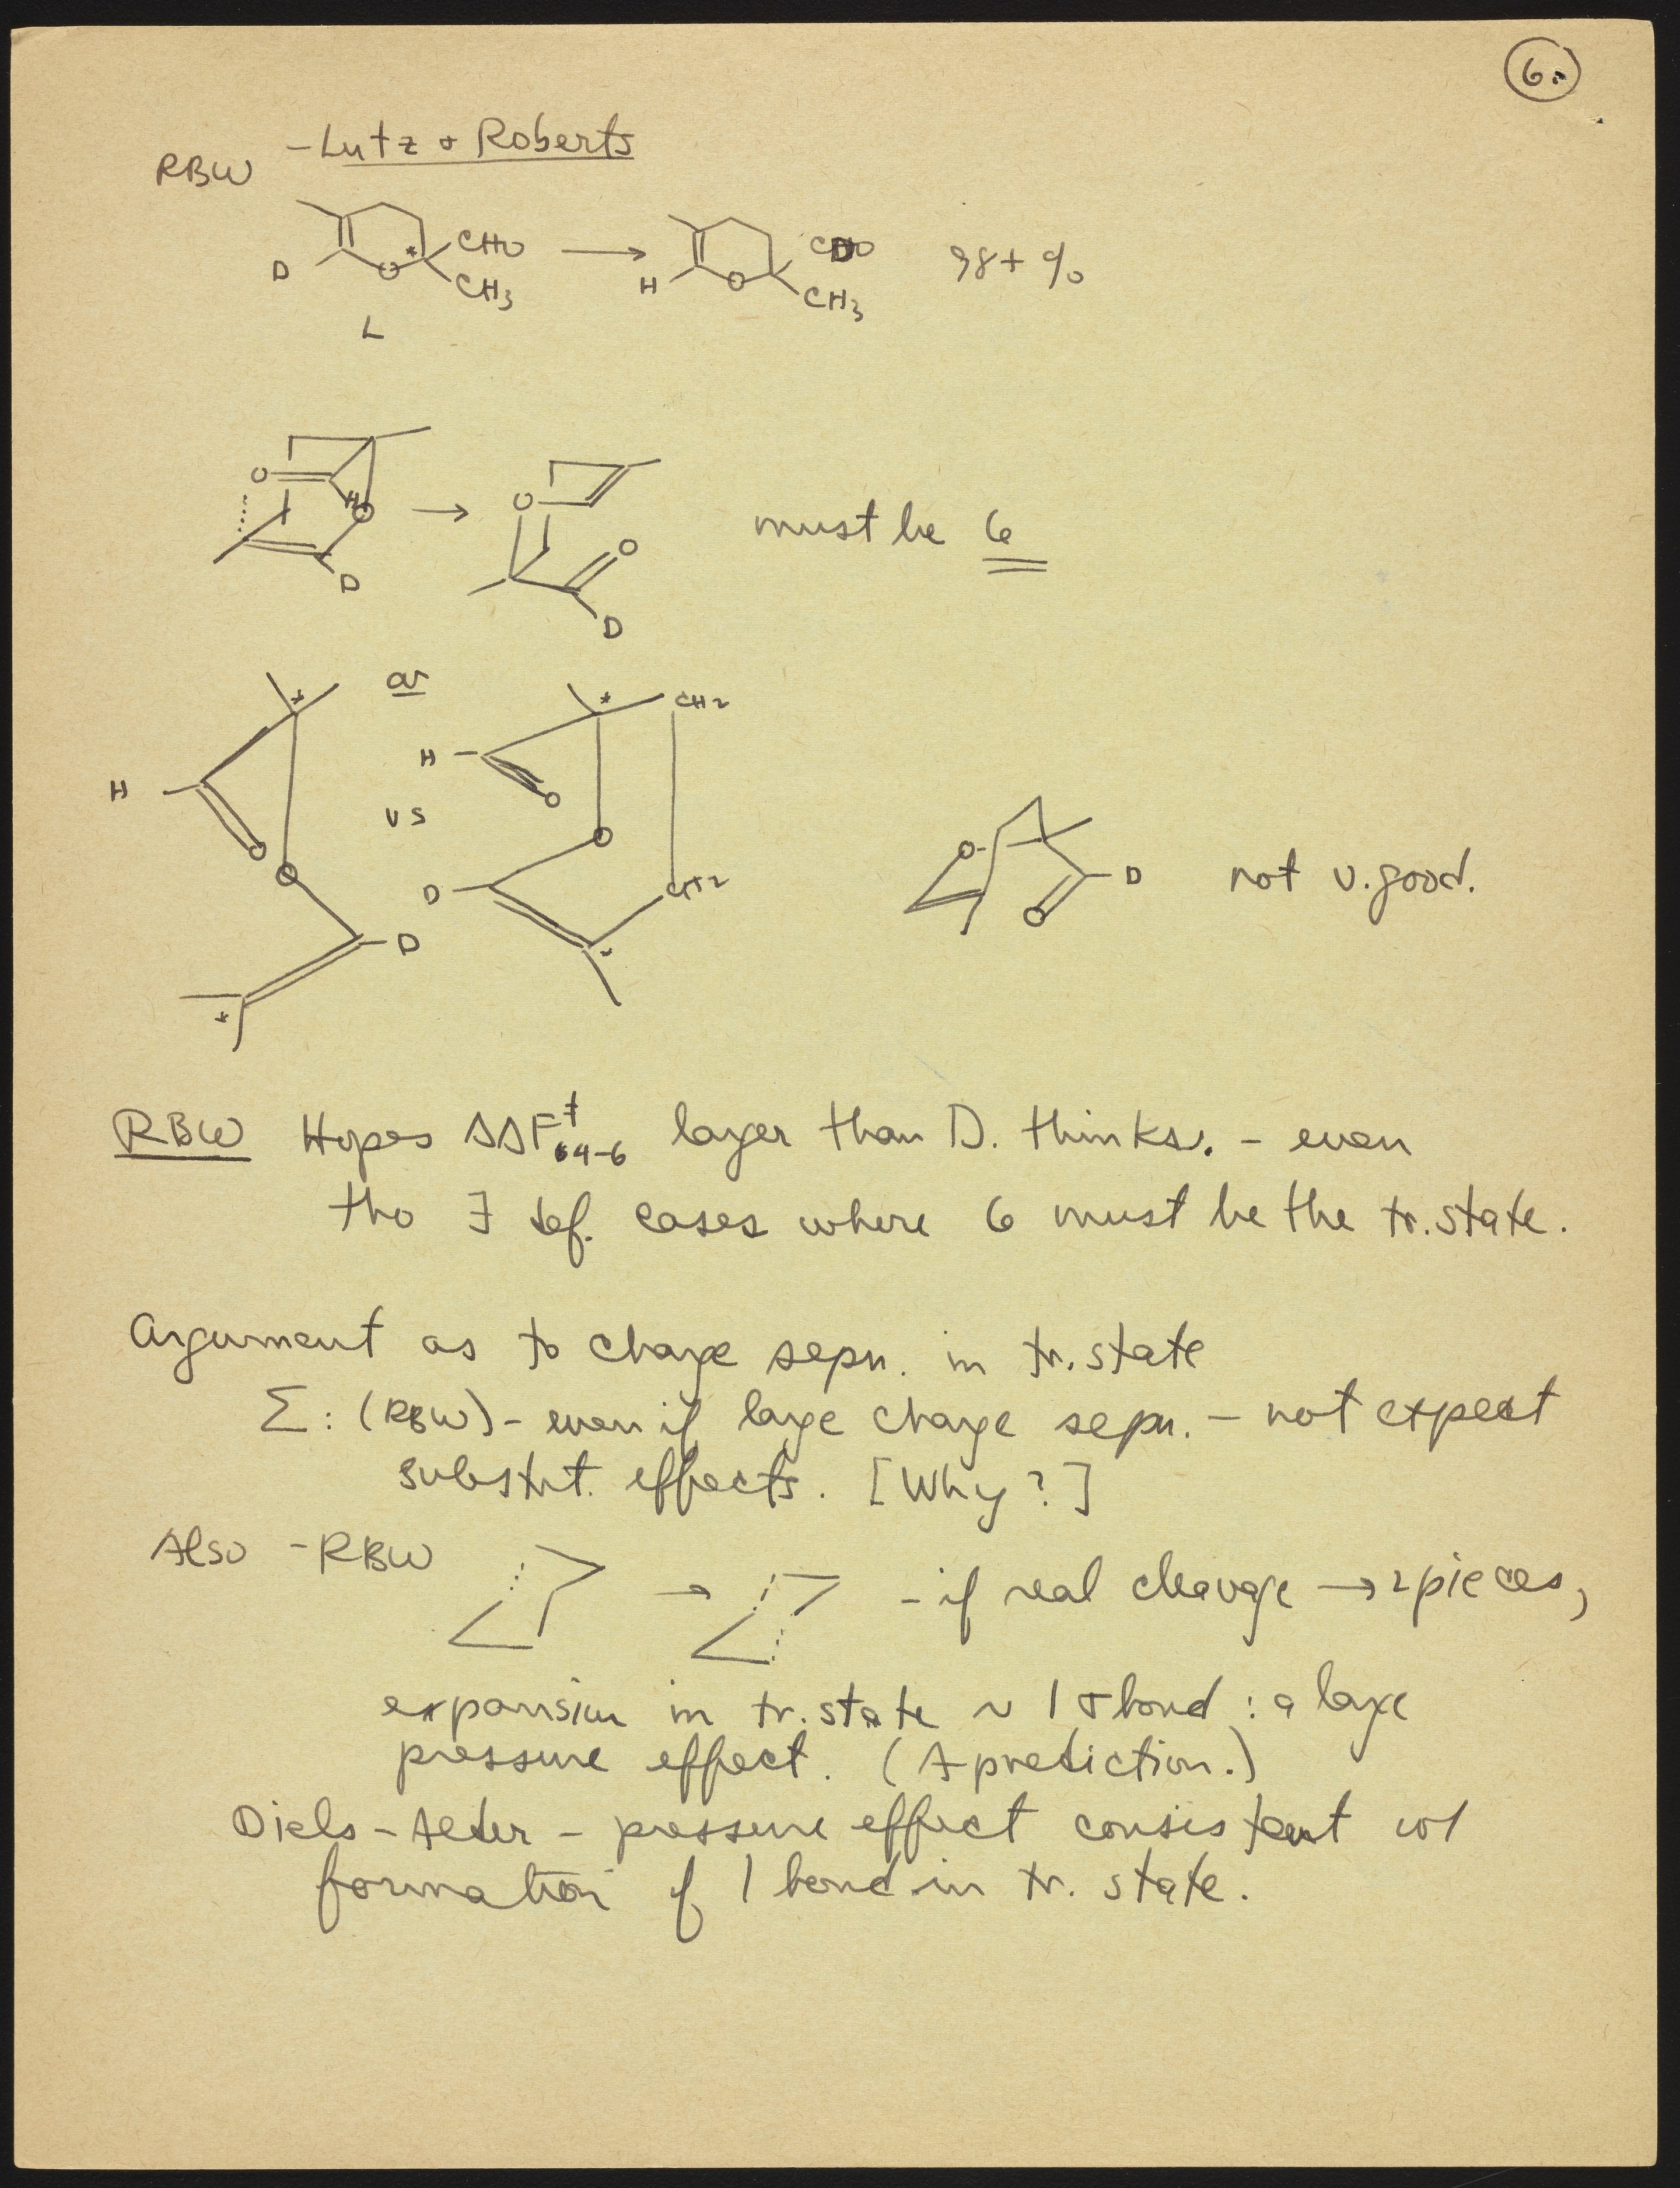 6.
RBW - Lutz + Roberts
D O * CHO CH3 → H O CDO CH3 98+ %
L
O H O D → O O D must be 6
* or * CH2
H O O D vs H O O D CH2 *
*
O O D not v. good.
RBW Hopes ΔΔF‡4-6 larger than D. thinks. - even
tho ∃ def. cases where 6 must be the tr. state.
Argument as to charge sepn. in tr. state
Σ: (RBW) - even if large charge sepn. - not expect
substit. effects. [Why?]
Also - RBW → - if real cleavage → 2 pieces,
expansion in tr. state ~ 1 σ bond : a large
pressure effect. (A prediction.)
Diels-Alder - pressure effect consistent w/
formation of 1 bond in tr. state.